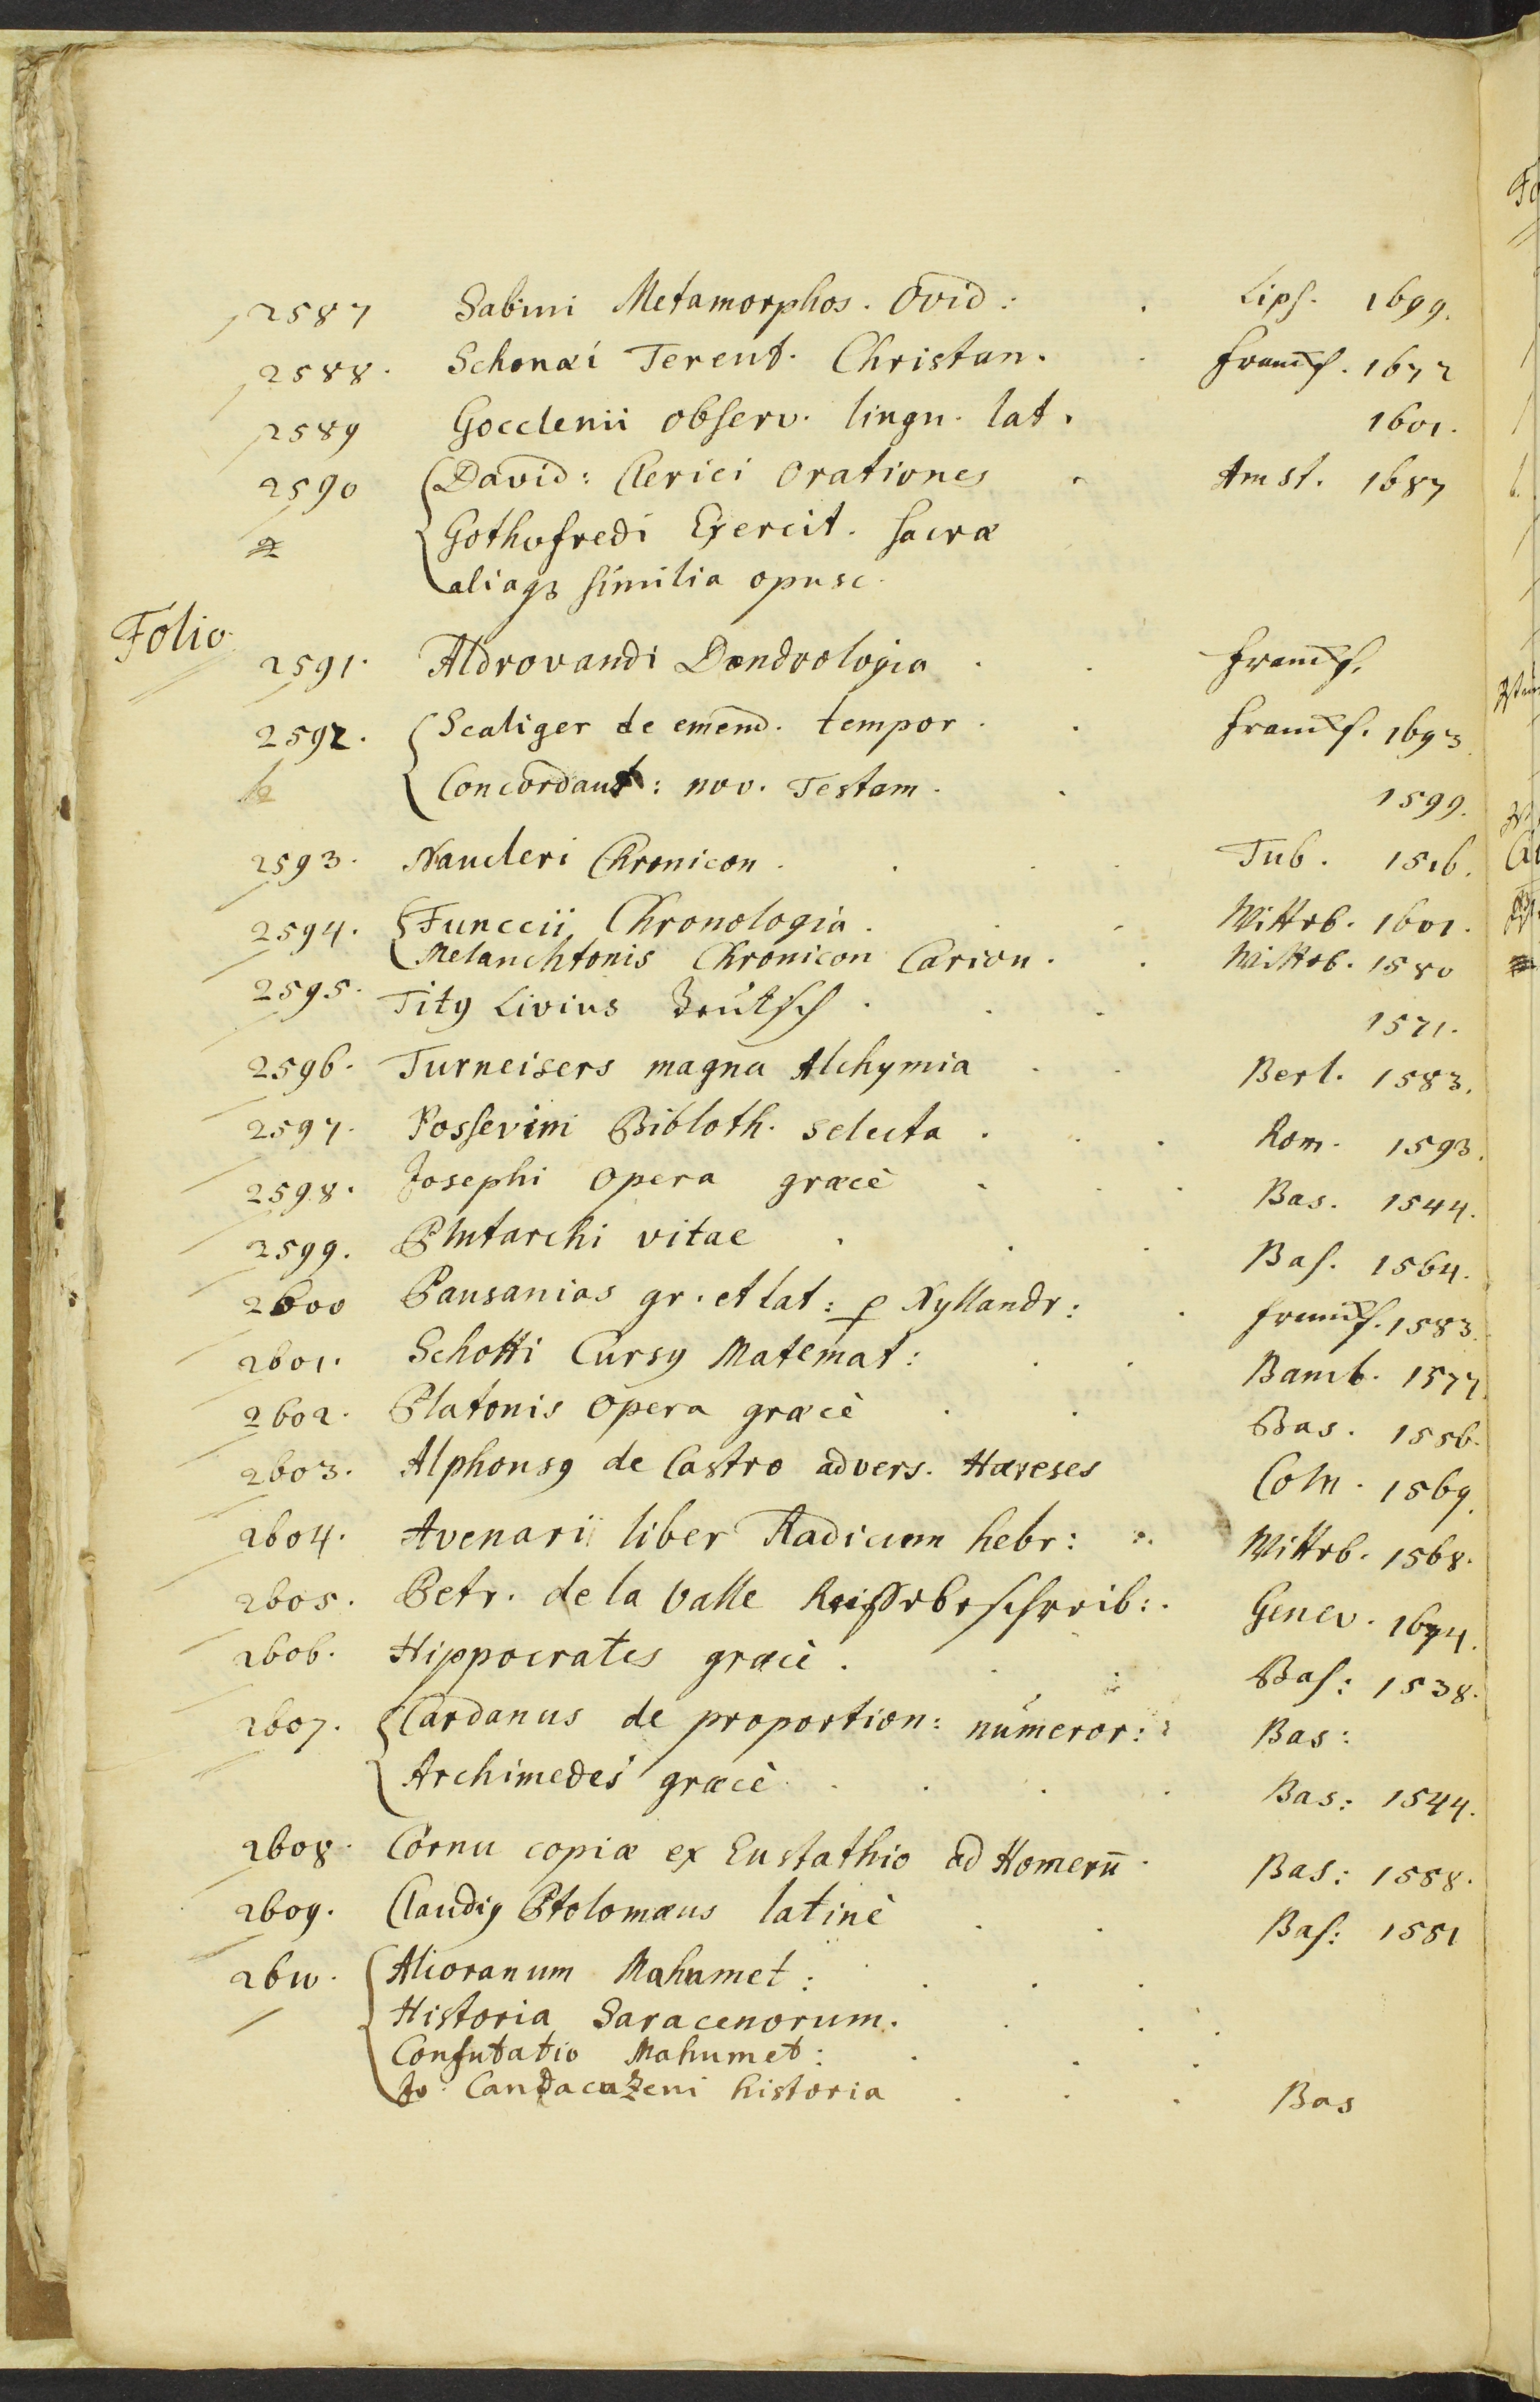 2587 Sabini Metamorphos. Ovid: . Lips. 1699.
2588. Schonæi Terent. Christan. . Francf. 1672
2589 Gocclenii observ. lingu. lat. 1601.
2590 David: Clerici Orationes . Amst. 1687
Gothofredi Exercit. sacræ
aliaqz similia opusc.
Folio.
2591. Aldrovandi Dendrologia . . Francf.
2592. Scaliger de emend. tempor. . Francf. 1693
Concordant: nov. Testam. . 1599.
2593. Naucleri Chronicon . . . Tub. 1516.
2594. Funccii Chronologia . . . Witteb. 1601.
Melanchtonis Chronicon Carion. . Witteb. 1580
2595. Titg Livius Deutsch . . . 1571.
2596. Turneisers magna Alchymia . . Berl. 1583.
2597. Possevini Bibloth. selecta . . . Rom. 1593.
2598. Josephi Opera græcè . . . Bas. 1544.
2599. Plutarchi vitae . . . Bas. 1564.
2600 Pausanias gr. et lat: p Xyllandr: . Francf. 1583.
2601. Schotti Cursg Matemat: . . Bamb. 1577.
2602. Platonis Opera græcè . . Bas. 1556.
2603. Alphonsg de Castro advers. Hæreses Coln. 1569.
2604. Avenarii liber Radicum hebr: . Witteb. 1568.
2605. Petr. de la Valle Reissebeschreib: . Genev. 1674.
2606. Hippocrates græcè . . . Bas: 1538.
2607. Cardanus de proportion: numeror: Bas:
Archimedes græcè . . . . Bas: 1544.
2608. Cornu copiæ ex Eustathio ad Homerū . Bas: 1558.
2609. Claudig Ptolomæus latinè . . Bas: 1551
2610. Alcoranum Mahumet: . . .
Historia Saracenorum. . . .
Confutatio Mahumet: . . .
Jo: Cantacuzeni historia . . . Bas